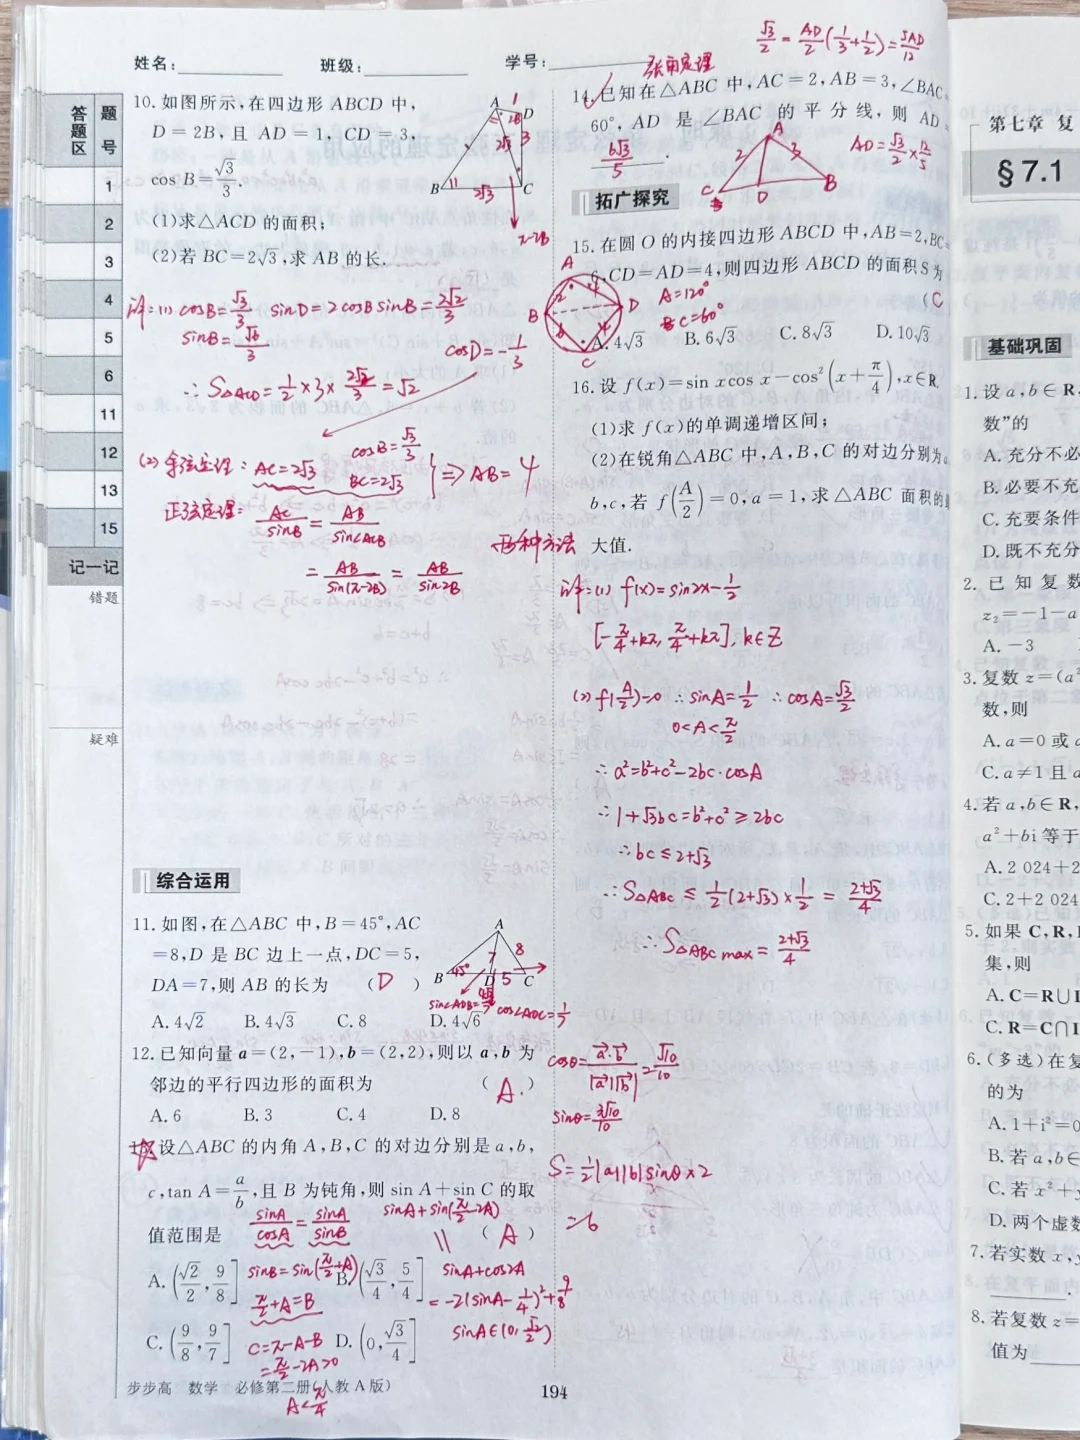 姓名:
班级:
学号:
答题区
题号
1
2
3
4
5
6
11
12
13
15
记一记
错题
疑难
10.如图所示,在四边形 ABCD 中,
D=2B,且 AD=1, CD=3,
cos B=√3/3.
(1)求△ACD 的面积;
(2)若 BC=2√3,求 AB 的长.
解:(1) cosB=√3/3 sinD=2cosBsinB=2√2/3
sinB=√6/3
cosD=-1/3
∴ S△ACD=1/2×3×2√2/3=√2
(2) 余弦定理: AC=2√3 cosB=√3/3 BC=2√3 } ⇒ AB=4
正弦定理: AC/sinB=AB/sin∠ACB
=AB/sin(π-2B)=AB/sin2B
两种方法
综合运用
11.如图,在△ABC 中,B=45°,AC
=8,D 是 BC 边上一点,DC=5,
DA=7,则 AB 的长为 ( D )
A.4√2 B.4√3 C.8 D.4√6
cos∠ADC=1/7
12.已知向量 a=(2,-1),b=(2,2),则以 a,b 为
邻边的平行四边形的面积为 ( A. )
A.6 B.3 C.4 D.8
cosθ=|a·b|/|a||b|=√10/10
sinθ=3√10/10
S=1/2|a||b|sinθ×2
=6
设△ABC 的内角 A,B,C 的对边分别是 a,b,
c,tan A=a/b,且 B 为钝角,则 sin A+sin C 的取
值范围是 ( A )
sinA/cosA=sinA/sinB
sinA+sin(π/2-2A)
||
sinB=sin(π/2+A)
sinA+cos2A
A.(√2/2,9/8] B.(√3/4,5/4]
π/2+A=B
=-2(sinA-1/4)²+9/8
C.(9/8,9/7] D.(0,√3/4]
C=π-A-B
=π/2-2A>0
A<π/4
sinA∈(0,√2/2)
步步高 数学 必修第二册(人教 A 版)
194
√3/2=AD/2(1/3+1/2)=5AD/12
张角定理
14.已知在△ABC 中,AC=2,AB=3,∠BAC
60°, AD 是 ∠BAC 的 平 分 线, 则 AD
6√3/5.
AD=√3/2×12/5
拓广探究
15.在圆 O 的内接四边形 ABCD 中,AB=2,BC=
6,CD=AD=4,则四边形 ABCD 的面积S为
( C
A=120°
C=60°
A.4√3 B.6√3 C.8√3 D.10√3
16.设 f(x)=sin xcos x-cos²(x+π/4),x∈R.
(1)求 f(x)的单调递增区间;
(2)在锐角△ABC 中,A,B,C 的对边分别为
b,c,若 f(A/2)=0,a=1,求△ABC 面积的
大值.
解:(1) f(x)=sin2x-1/2
[-π/4+kπ, π/4+kπ], k∈Z
(2) f(A/2)=0 ∴sinA=1/2 ∴cosA=√3/2
0<A<π/2
∴a²=b²+c²-2bc·cosA
∴1+√3bc=b²+c²≥2bc
∴bc≤2+√3
∴S△ABC ≤ 1/2(2+√3)×1/2 = 2+√3/4
∴S△ABC max=2+√3/4
第七章 复
§7.1
基础巩固
1.设 a,b∈R,
数”的
A.充分不必
B.必要不充
C.充要条件
D.既不充分
2. 已 知 复 数
z₂=-1-a
A.-3
3.复数 z=(a²
数,则
A.a=0或 a
C.a≠1且 a
4.若 a,b∈R,
a²+bi等于
A.2 024+2
C.2+2 024
5.如果 C,R,
集,则
A.C=R∪I
C.R=C∩I
6.(多选)在复
的为
A.1+i²=0
B.若 a,b∈
C.若 x²+y
D.两个虚数
7.若实数 x,y
8.若复数 z=
值为